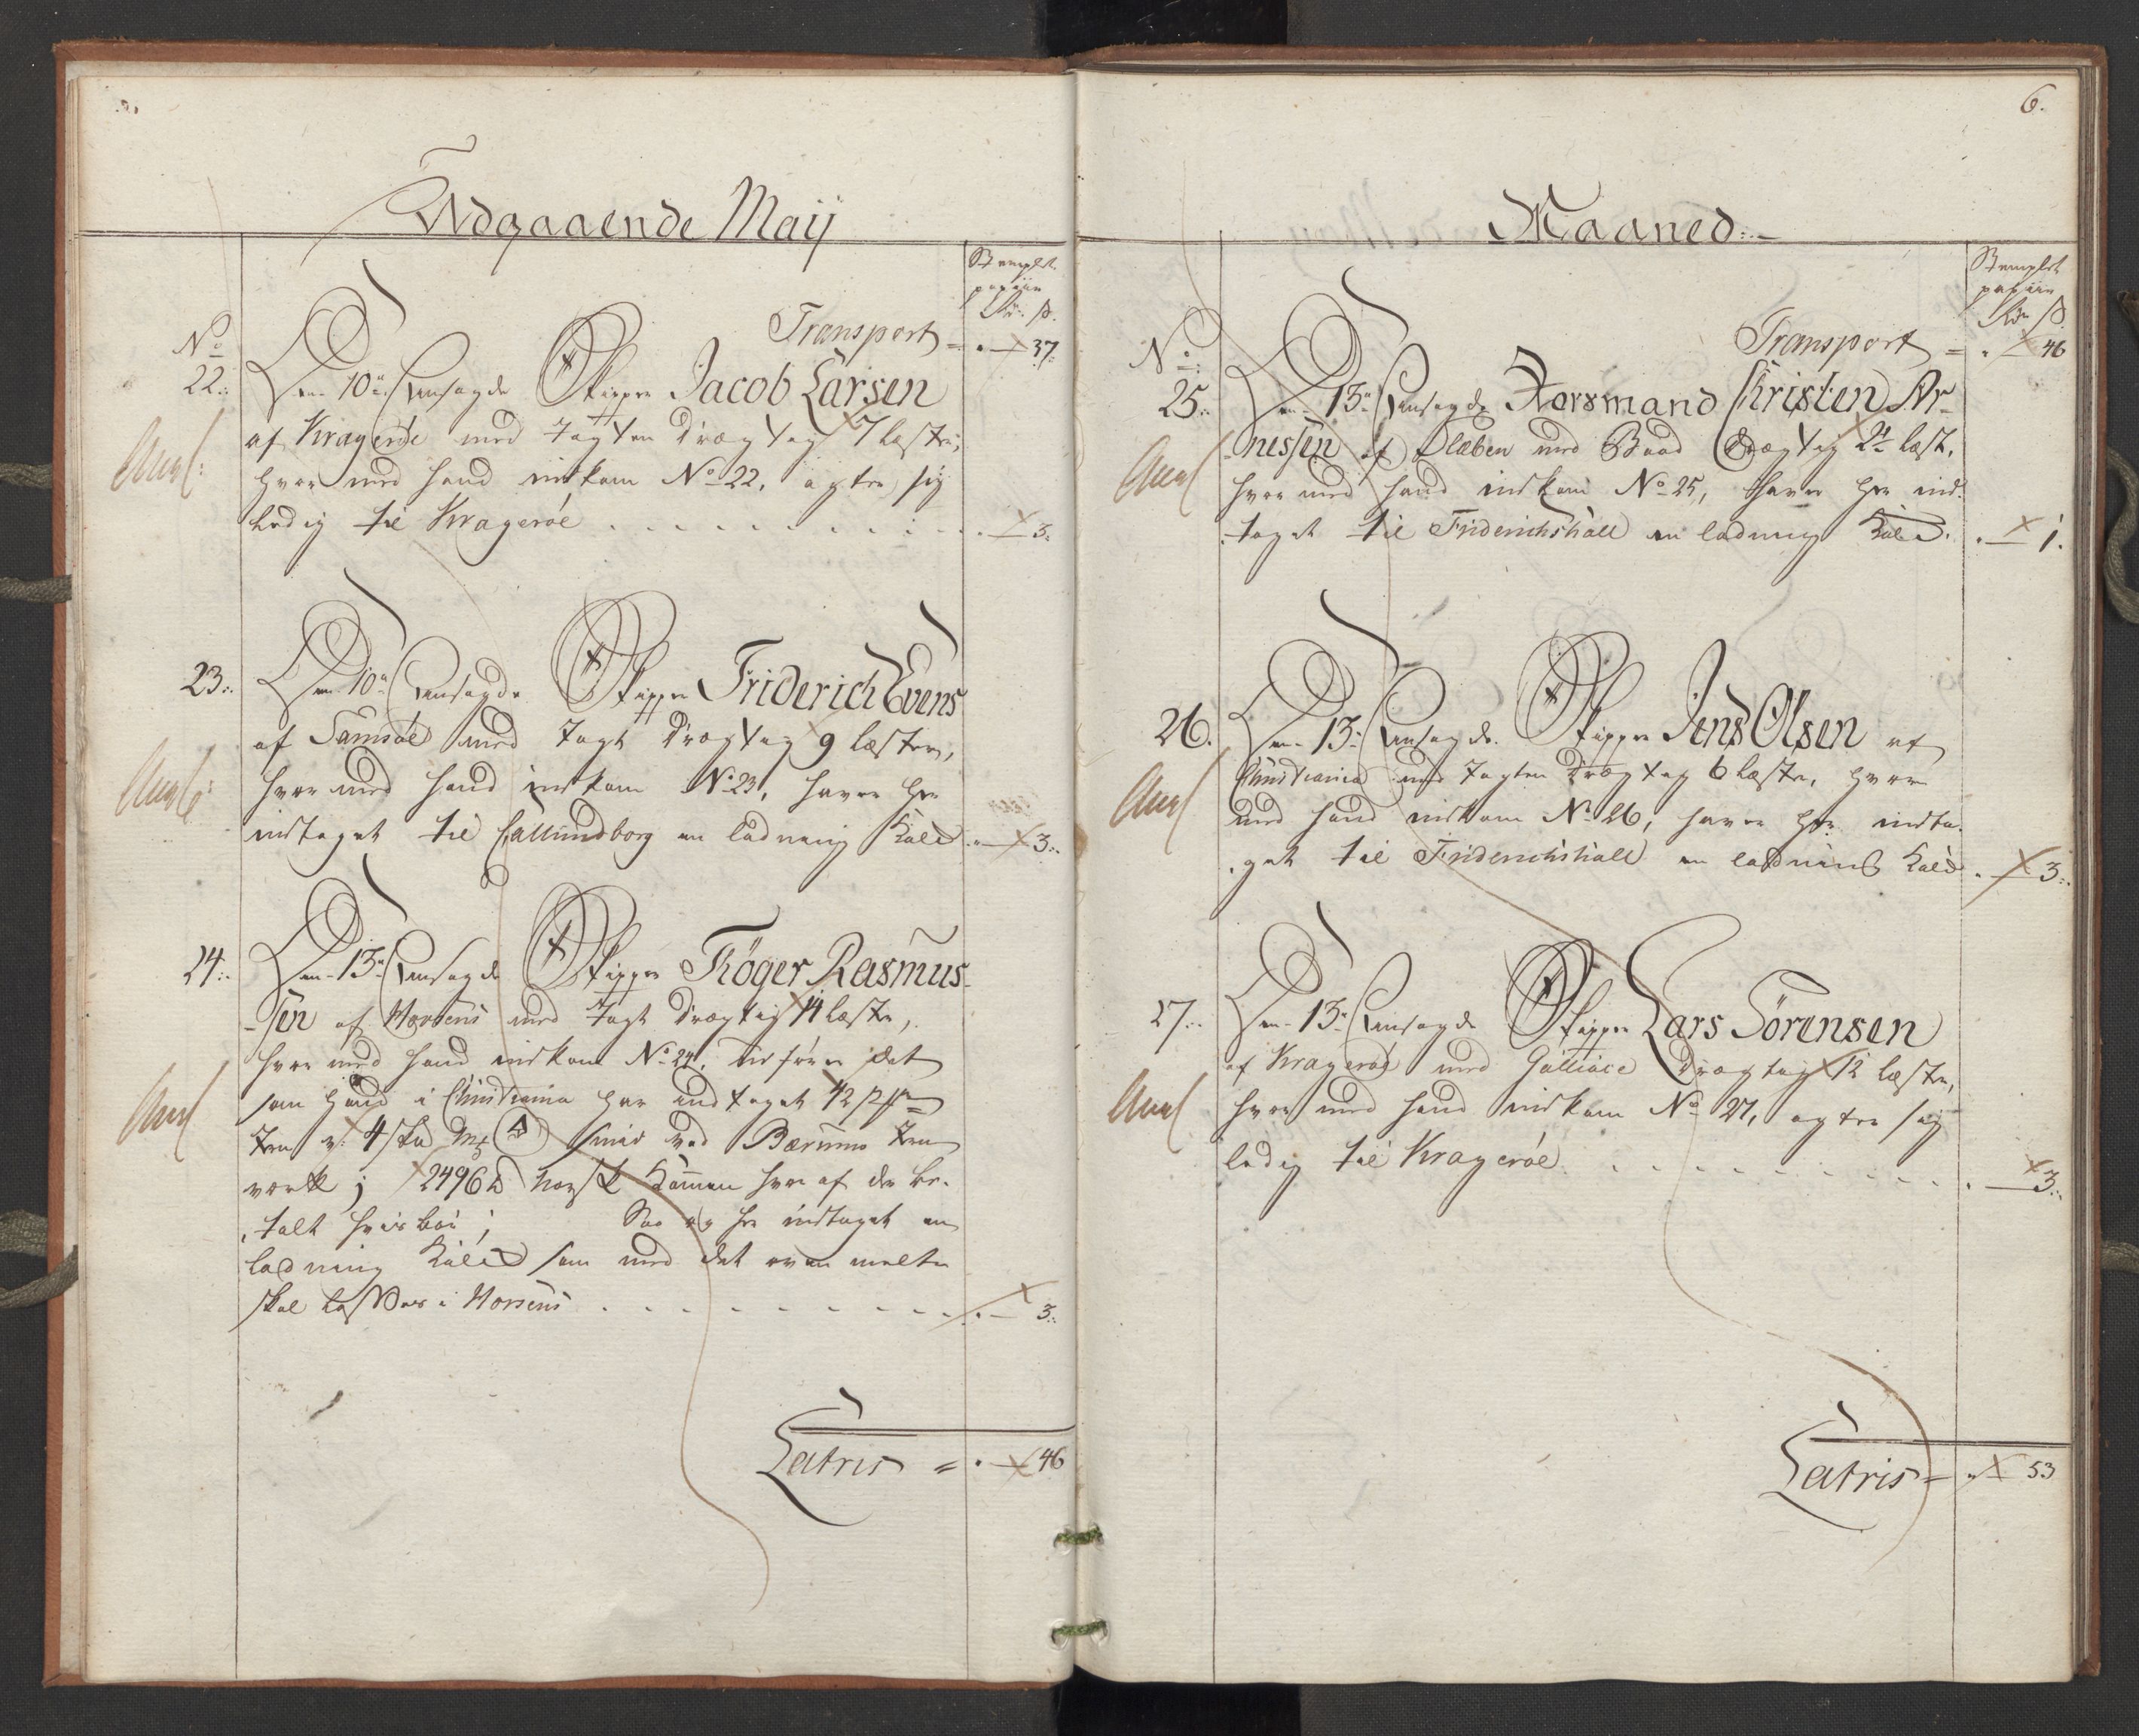 Udgaaende Maij
Stemplet
papiir
Rdr ß
Transport = 37
No
22. Den 10de Ansagde Skipper Jacob Larsen
af Kragerøe med Jagten drægtig 7 læster,
hvor med hand indkom No 22, agter sig
ledig til Kragerøe 3.
23. Den 10de Ansagde Skipper Friderich Evens
af Samsøe med Jagt drægtig 9 læster,
hvor med hand indkom No 23, haver her
indtaget til Callundborg en ladning 3.
24. Den 13de Ansagde Skipper Röger Rasmus-
sen af Horsens med Jagt drægtig 14 læster,
hvor med hand indkom No 24, udfører det
som hand i Christiania har indtaget 42
4 ved Bærums Jern
værk; 2496 norsk hvor af er be-
talt; Saa og her indtaget en
ladning som med det oven melte
skal losses i Horsens 3.
Latris = 46
6.
Maaned
Stemplet
papiir
Rdr ß
Transport = 46
No
25. Den 13de Ansagde Kristen Ar-
nessen af med Baad drægtig 2½ læst,
hvor med hand indkom No 25, haver her ind-
taget til Friderichshall en ladning 1.
26. Den 13de Ansagde Skipper Jens Olsen af
Christiania med Jagten drægtig 6 læster, hvor
med hand indkom No 26, haver her indta-
get til Friderichshall en ladning 3.
27. Den 13de Ansagde Skipper Lars Sörensen
af Kragerøe med Galliace drægtig 12 læster,
hvor med hand indkom No 27, agter sig
ledig til Kragerøe 3.
Latris = 53